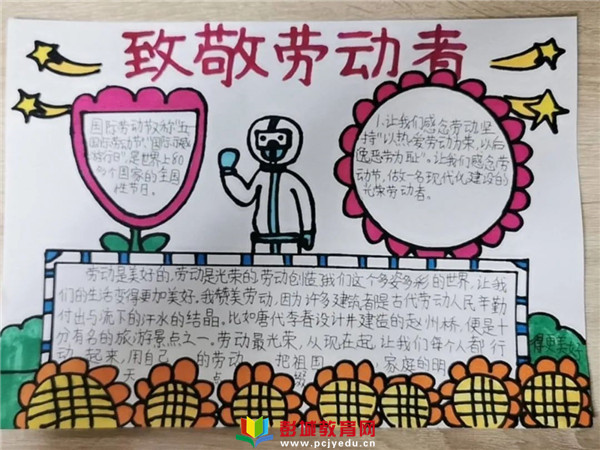 致敬劳动者
国际劳动节又称“五一
国际劳动节”“国际示威
游行日”,是世界上80
多个国家的全国
性节日。
1.让我们感念劳动坚
持“以热爱劳动为荣,以好
逸恶劳为耻”。让我们感念劳
动节,做一名现代化建设的
光荣劳动者。
劳动是美好的,劳动是光荣的,劳动创造了我们这个多姿多彩的世界,让我
们的生活变得更加美好,我赞美劳动,因为许多建筑都是古代劳动人民辛勤
付出与流下的汗水的结晶。比如唐代李春设计并建造的赵州桥,便是十
分有名的旅游景点之一。劳动最光荣,从现在起,让我们每个人都行
动起来,用自己的劳动把祖国家庭的明
天点得更美好
彭城教育网
www.pcjyedu.cn